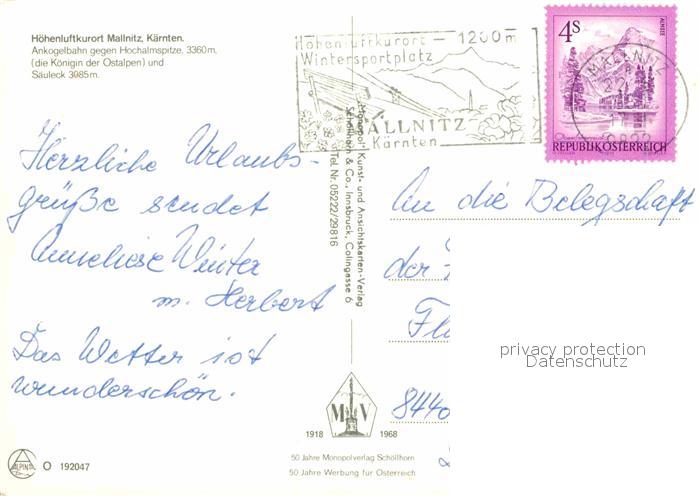 Höhenluftkurort Mallnitz, Kärnten.
Ankogelbahn gegen Hochalmspitze, 3360m,
(die Königin der Ostalpen) und
Säuleck 3085m.
Höhenluftkurort — 1200m
Wintersportplatz
MALLNITZ
Kärnten
MALLNITZ
4S
ALMSEE
REPUBLIK ÖSTERREICH
Herzliche Urlaubs-
grüße sendet
Anneliese Winter
m. Herbert
Das Wetter ist
wunderschön.
„Monopol" Kunst- und Ansichtskarten-Verlag
Schöllhorn & Co., Innsbruck, Colingasse 6
Tel. Nr. 05222/29816
An die Belegschaft
der
Fl
8440
privacy protection
Datenschutz
M V
1918 1968
50 Jahre Monopolverlag Schöllhorn
50 Jahre Werbung für Österreich
ALPINA
O 192047